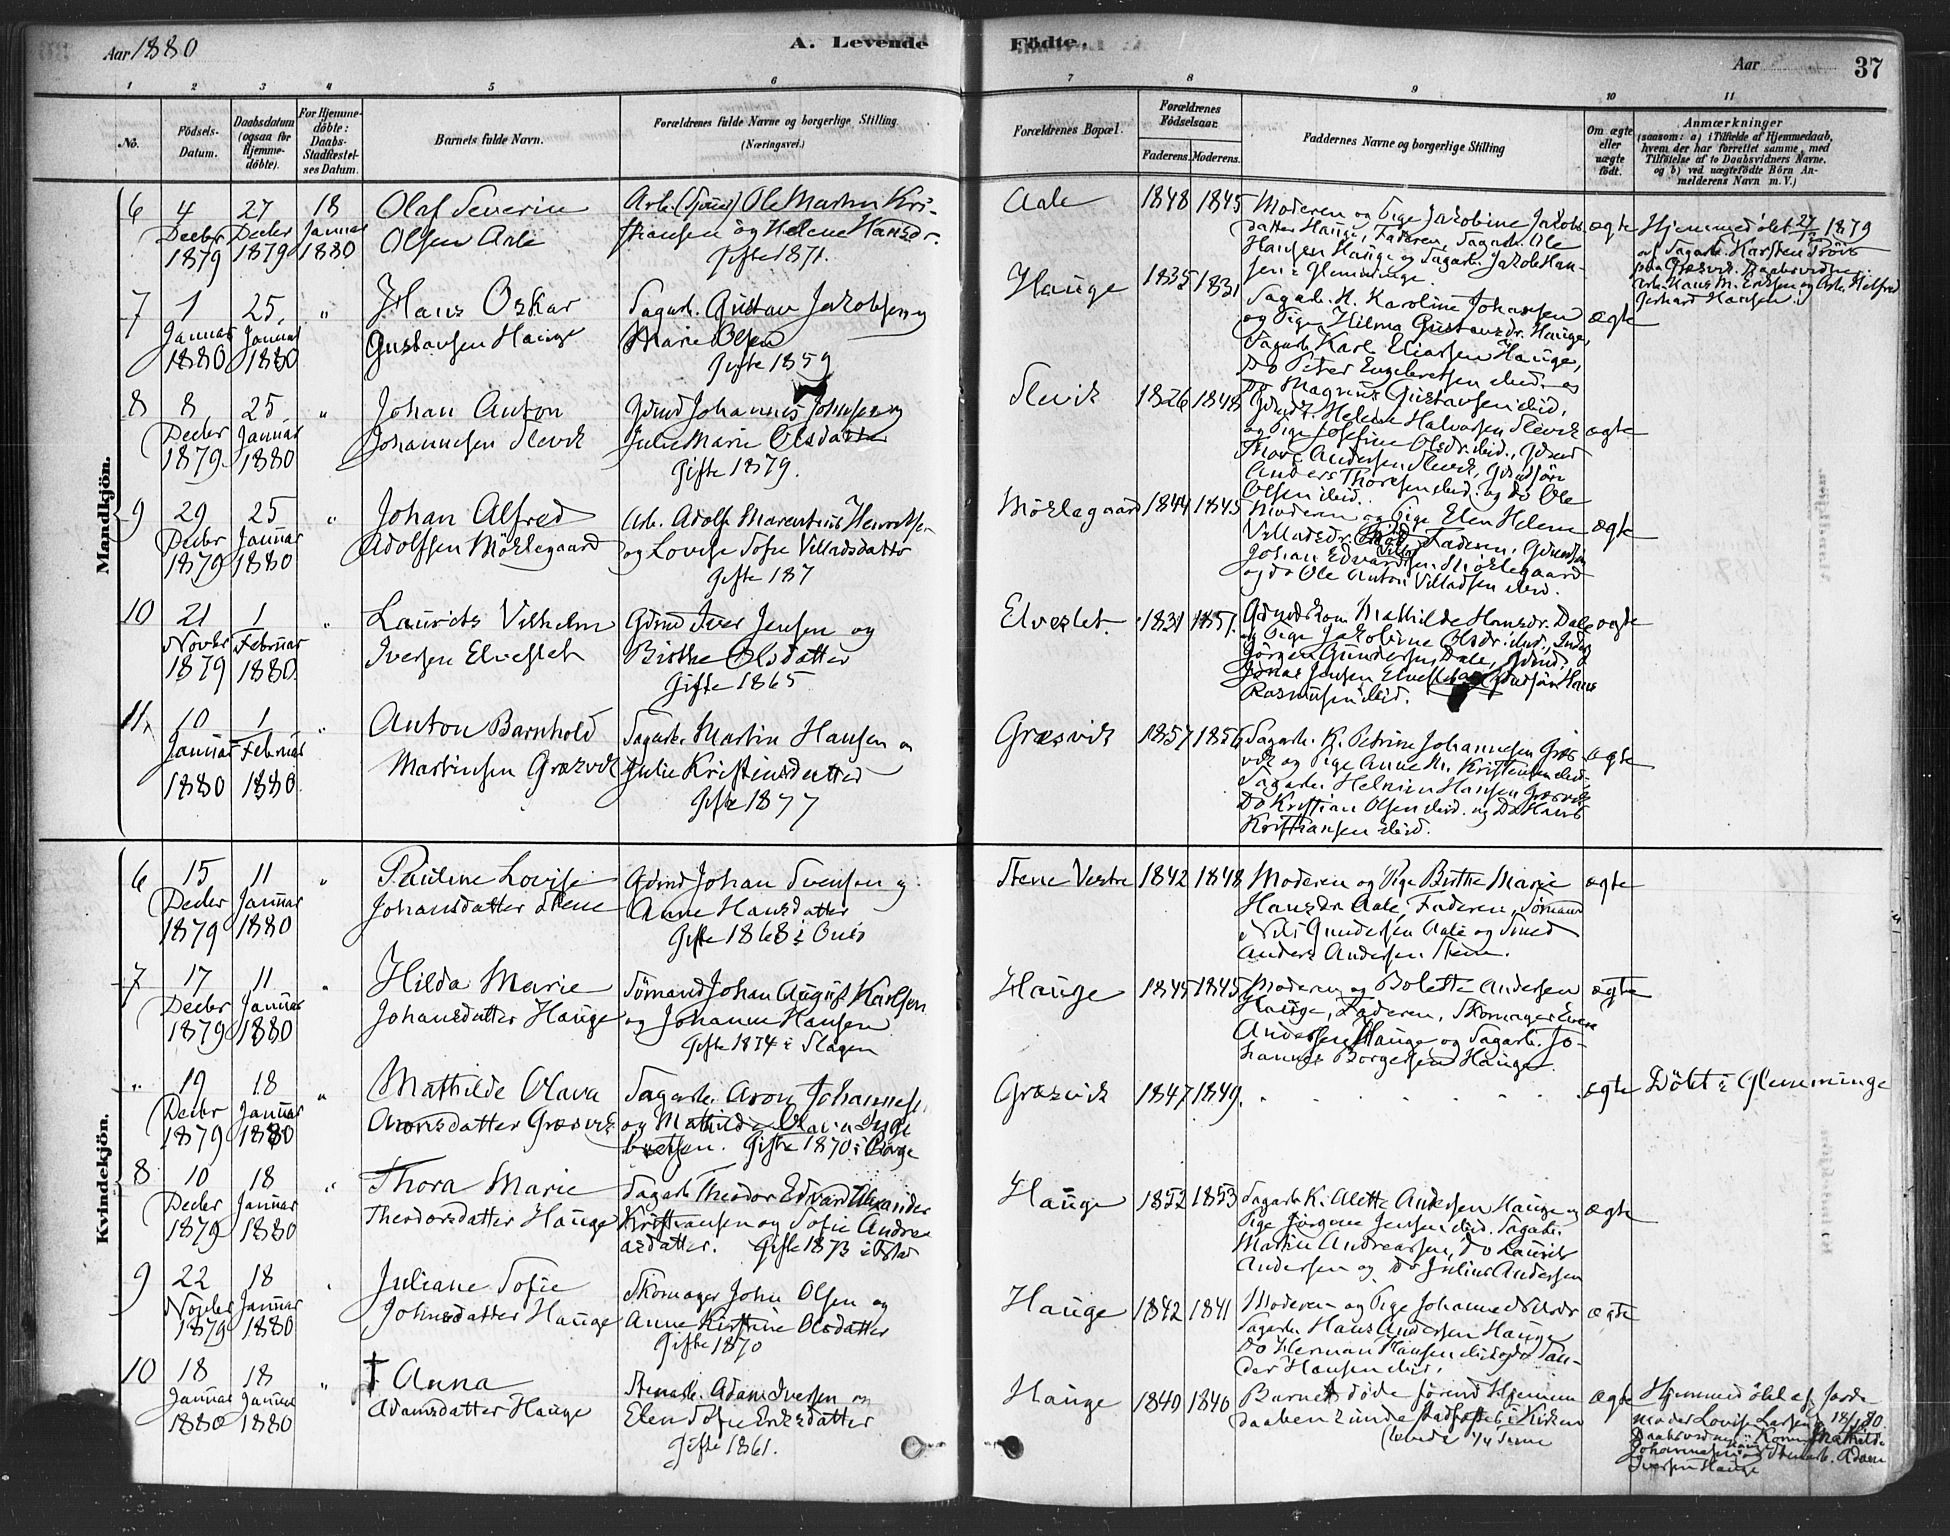 Aar 1880
A. Levende Födte.
Aar 37
1 2 3 4 5 6 7 8 9 10 11
No.
Födsels-Datum.
Daabsdatum (ogsaa for Hjemmedöbte).
For Hjemmedöbte: Daabs-Stadfæstelses Datum.
Barnets fulde Navn.
Forældrenes fulde Navne og borgerlige Stilling (Næringsvei.)
Forældrenes Bopæl.
Forældrenes Födselsaar.
Faderens. Moderens.
Faddernes Navne og borgerlige Stilling
Om ægte eller uægte födt.
Anmærkninger
(saasom: a) i Tilfælde af Hjemmedaab,
hvem der har forrettet samme, med
Tilföielse af to Daabsvidners Navne.
og b) ved uægtefödte Börn Anmelderens Navn m. V.)
Mandkjön.
6 4 Decbr 1879 27 Decbr 1879 18 Januar 1880
Olaf Severin
Olsen Aale
Arb. Ole Martin Kri-
stiansen og Helene Hansdr.
Gifte 1871.
Aale 1848 1845
Moderen og Pige Jakobine Jakobs
datter Hauge, Faderen, Sagarb. Ole
Hansen Hauge og Sagarb. Jakob Han-
sen i Glemminge.
ægte
Hjemmedöbt 27/12 1879
af Sagarb. Karsten
paa Græsvik. Daabsvidner:
Arb. Hans M. Eriksen og Arb.
Gerhard Hansen.
7 1 Januar 1880 25 Januar 1880 "
Hans Oskar
Gustavsen Hauge
Sagarb. Gustav Jakobsen og
Marie Olsen
Gifte 1859
Hauge 1835 1831
Sagarb. K. Karoline Johansen
og Pige Hilma Gustavsdr. Hauge,
Sagarb. Karl Eliassen Hauge,
Do Peter Engebretsen ibid. og
Do Magnus Gustavsen ibid.
ægte
8 8 Decbr 1879 25 Januar 1880 "
Johan Anton
Johannesen Slevik
Gdmd Johannes Johnsen og
Julie Marie Olsdatter
Gifte 1879.
Slevik 1826 1848
Gdmdk. Helene Halvorsen Slevik
og Pige Josefine Olsdr. ibid., Gdmd
Thore Andersen Slevik, Gdmdsön
Anders Thoresen ibid. og Do Ole
Olsen ibid.
ægte
9 29 Decbr 1879 25 Januar 1880 "
Johan Alfred
Adolfsen Möklegaard
Arb. Adolf Marentius Henriksen
og Lovise Sofie Villadsdatter
Gifte 187
Möklegaard 1844 1845
Moderen og Pige Elen Helene
Villadsdr. Faderen, Gdmdsön
Johan Edvardsen Möklegaard
og do Ole Anton Villadsen ibid.
ægte
10 21 Novbr 1879 1 Februar 1880 "
Laurits Vilhelm
Iversen Elveslet
Gdmd Iver Jensen og
Birthe Olsdatter
Gifte 1865
Elveslet 1831 1857.
Gdmdskone Mathilde Hansdr. Dale
og Pige Jakobine Olsdr. ibid.,
Jörgen Gundersen Dale, Gdmd.
Jonas Jensen Elveslet og Gdmdsön Hans
Rasmussen ibid.
ægte
11 10 Januar 1880 1 Februar 1880 "
Anton Barnhold
Martinsen Græsvik
Sagarb. Martin Hansen og
Julie Kristiansdatter
Gifte 1877
Græsvik 1857 1856
Sagarb. K. Petrine Johannesen Græs-
vik og Pige Anne M. Kristensen ibid.
Sagarb. Helmien Hansen Græsvik
Do Kristian Olsen ibid. og Do Hans
Kristiansen ibid.
ægte
Kvindekjön.
6 15 Decbr 1879 11 Januar 1880 "
Pauline Lovise
Johansdatter Stene
Gdmd Johan Svensen og
Anne Hansdatter
Gifte 1868 i Onsö
Stene Vestre 1842 1848
Moderen og Pige Birthe Marie
Hansdr. Aale, Faderen, Sömand
Nils Gundersen Aale og Smed
Anders Andersen Stene.
ægte
7 17 Decbr 1879 11 Januar 1880 "
Hilda Marie
Johansdatter Hauge
Sömand Johan August Karlsen
og Johanne Hansen
Gifte 1874 i Slagen
Hauge 1845 1845
Moderen og Bolette Andersen
Hauge, Faderen, Skomager Even
Andersen Hauge og Sagarb. Jo-
hannes Borgersen Hauge.
ægte
" 19 Decbr 1879 18 Januar 1880 "
Mathilde Olava
Aronsdatter Græsvik
Sagarb. Aron Johannesen
og Mathilde Olava Inge
bretsen. Gifte 1870 i Borge
Græsvik 1847 1849.
ægte
Döbt i Glemminge
8 10 Decbr 1879 18 Januar 1880 "
Thora Marie
Theodorsdatter Hauge
Sagarb. Theodor Edvard Alexander
Kristiansen og Sofie Andre
asdatter. Gifte 1873
Hauge 1852 1853
Sagarb. K. Alette Andersen Hauge og
Pige Jörgine Jensen ibid. Sagarb.
Martin Andreassen, Do Laurits
Andersen og Do Julius Andersen
ægte
9 22 Novbr 1879 18 Januar 1880 "
Juliane Sofie
Johnsdatter Hauge
Skomager John Olsen og
Anne Kirstine Olsdatter
Gifte 1870
Hauge 1842 1841
Moderen og Pige Johanne Nilsdr
Sagarb. Hans Andersen Hauge
Do Herman Hansen ibid. og do San-
der Hansen ibid.
ægte
10 18 Januar 1880 18 Januar 1880 "
† Anna
Adamsdatter Hauge
Stenarb. Adam Iversen og
Elen Sofie Eriksdatter
Gifte 1861.
Hauge 1840 1840
Barnet döde förend Hjemme
daaben kunde stadfæstes i Kirken
(levede 1/4 Time
ægte
Hjemmedöbt af Jorde
moder Lovise Larsen 18/1 80.
Daabsvidner: Kone Mathilde
Johannesen og Stenarb. Adam
Iversen Hauge